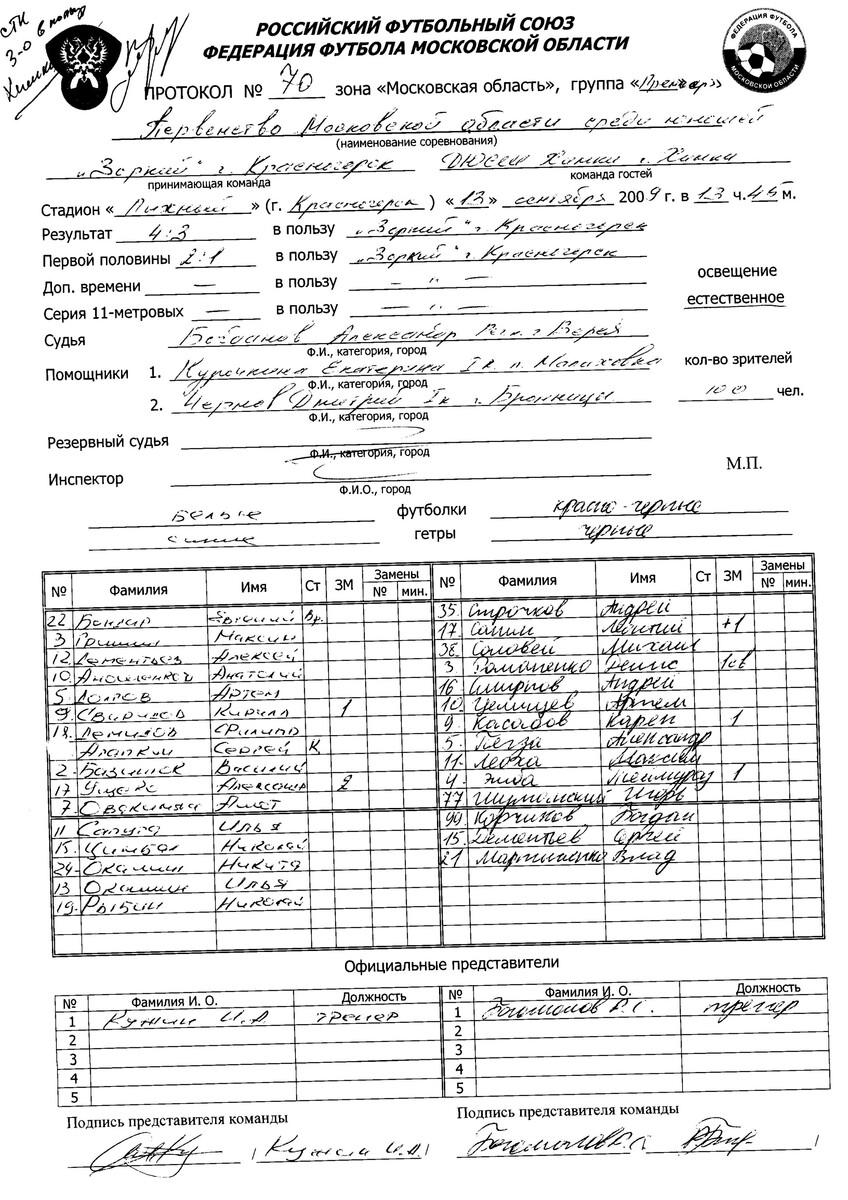 СТК
3-0 в пользу
Химки
РОССИЙСКИЙ ФУТБОЛЬНЫЙ СОЮЗ
ФЕДЕРАЦИЯ ФУТБОЛА МОСКОВСКОЙ ОБЛАСТИ
ФЕДЕРАЦИЯ ФУТБОЛА МОСКОВСКОЙ ОБЛАСТИ
ПРОТОКОЛ № 70 зона «Московская область», группа «Премьер»
Первенство Московской области среди юношей
(наименование соревнования)
"Зоркий" г. Красногорск ДЮСШ Химки г. Химки
принимающая команда команда гостей
Стадион « Лыжный » (г. Красногорск ) «13» сентября 2009 г. в 13 ч. 45 м.
Результат 4:3 в пользу "Зоркий" г. Красногорск
Первой половины 2:1 в пользу "Зоркий" г. Красногорск
Доп. времени — в пользу — " —
Серия 11-метровых — в пользу — " —
освещение
естественное
Судья Богданов Александр г. Верея
Ф.И., категория, город
Помощники 1. Курочкина Екатерина I к. п. Малаховка кол-во зрителей
Ф.И., категория, город
2. Чернов Дмитрий I к г. Бронницы 100 чел.
Ф.И., категория, город
Резервный судья
Ф.И., категория, город
Инспектор М.П.
Ф.И.О., город
Белые футболки красно-черные
синие гетры черные
№ Фамилия Имя Ст ЗМ Замены № мин. № Фамилия Имя Ст ЗМ Замены № мин.
22 Бондар Евгений Вр. 35. Строчков Андрей
3 Гришин Максим 17. Леонтий +1
12 Дементьев Алексей 38. Соловей Михаил
10. Анатолий 3 Романенко Денис 1
5 Долгов Артем 16 Смирнов Андрей
9. Свиридов Кирилл 1 10. Целищев Артем
18. Демидов Филипп 9. Касабов Карен 1
Агапкин Сергей К 5. Пегза Александр
2. Василий 11. Леоха Максим
17 Александр 2 4. Теймураз 1
7. Овакимян Ашот 77 Игорь
11 Сапура Илья 99. Корчинов Богдан
15. Цимбал Николай 15. Дементьев Сергей
24 Окатин Никита 21 Мартыненко Влад
13 Илья
19. Рыбин Николай
Официальные представители
№ Фамилия И. О. Должность № Фамилия И. О. Должность
1 Кужин И.А. тренер 1 Богомолов Р.С. тренер
2 2
3 3
4 4
5 5
Подпись представителя команды Подпись представителя команды
Кужин И.А. Богомолов Р.С.